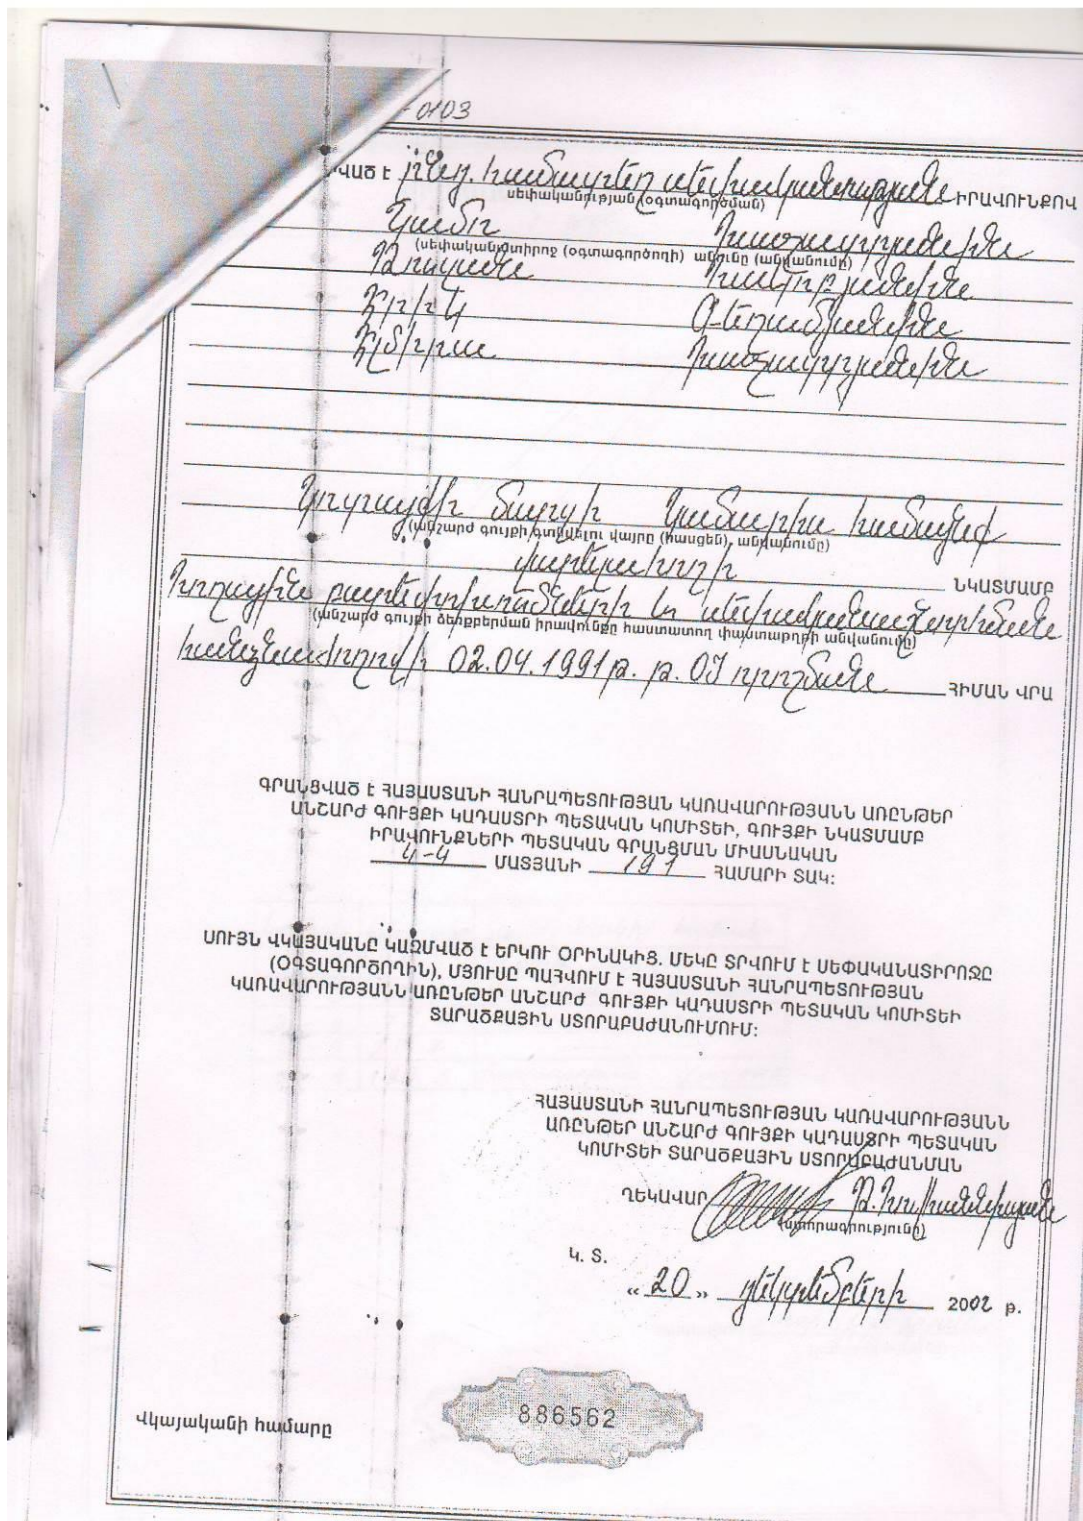 -0103
ՎԱԾ Է ընդ. համատեղ սեփականության ԻՐԱՎՈՒՆՔՈՎ
սեփականության (օգտագործման)
Կամո Խաչատրյանին
(սեփականատիրոջ (օգտագործողի) անունը (անվանումը)
Հակոբյանին
Գեղամյանին
Էլմիրա Խաչատրյանին
Կոտայքի մարզի Կամարիս համայնք
(անշարժ գույքի գտնվելու վայրը (հասցեն), անվանումը)
վարելահողի ՆԿԱՏՄԱՄԲ
Հողային բարեփոխումների և սեփականաշնորհման
(անշարժ գույքի ձեռքբերման իրավունքը հաստատող փաստաթղթի անվանումը)
հանձնաժողովի 02.04.1991թ. թ. 03 որոշման ՀԻՄԱՆ ՎՐԱ
ԳՐԱՆՑՎԱԾ Է ՀԱՅԱՍՏԱՆԻ ՀԱՆՐԱՊԵՏՈՒԹՅԱՆ ԿԱՌԱՎԱՐՈՒԹՅԱՆՆ ԱՌԸՆԹԵՐ
ԱՆՇԱՐԺ ԳՈՒՅՔԻ ԿԱԴԱՍՏՐԻ ՊԵՏԱԿԱՆ ԿՈՄԻՏԵԻ, ԳՈՒՅՔԻ ՆԿԱՏՄԱՄԲ
ԻՐԱՎՈՒՆՔՆԵՐԻ ՊԵՏԱԿԱՆ ԳՐԱՆՑՄԱՆ ՄԻԱՍՆԱԿԱՆ
4-4 ՄԱՏՅԱՆԻ 191 ՀԱՄԱՐԻ ՏԱԿ:
ՍՈՒՅՆ ՎԿԱՅԱԿԱՆԸ ԿԱԶՄՎԱԾ Է ԵՐԿՈՒ ՕՐԻՆԱԿԻՑ. ՄԵԿԸ ՏՐՎՈՒՄ Է ՍԵՓԱԿԱՆԱՏԻՐՈՋԸ
(ՕԳՏԱԳՈՐԾՈՂԻՆ), ՄՅՈՒՍԸ ՊԱՀՎՈՒՄ Է ՀԱՅԱՍՏԱՆԻ ՀԱՆՐԱՊԵՏՈՒԹՅԱՆ
ԿԱՌԱՎԱՐՈՒԹՅԱՆՆ ԱՌԸՆԹԵՐ ԱՆՇԱՐԺ ԳՈՒՅՔԻ ԿԱԴԱՍՏՐԻ ՊԵՏԱԿԱՆ ԿՈՄԻՏԵԻ
ՏԱՐԱԾՔԱՅԻՆ ՍՏՈՐԱԲԱԺԱՆՈՒՄՈՒՄ:
ՀԱՅԱՍՏԱՆԻ ՀԱՆՐԱՊԵՏՈՒԹՅԱՆ ԿԱՌԱՎԱՐՈՒԹՅԱՆՆ
ԱՌԸՆԹԵՐ ԱՆՇԱՐԺ ԳՈՒՅՔԻ ԿԱԴԱՍՏՐԻ ՊԵՏԱԿԱՆ
ԿՈՄԻՏԵԻ ՏԱՐԱԾՔԱՅԻՆ ՍՏՈՐԱԲԱԺԱՆՄԱՆ
ՂԵԿԱՎԱՐ Թ. Հովհաննիսյան
(ստորագրությունը)
Կ. Տ.
«20» դեկտեմբերի 2002 թ.
Վկայականի համարը
886562